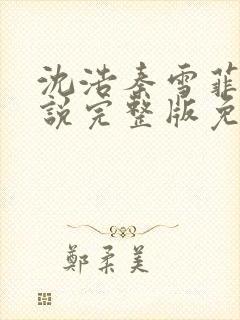 沈浩秦雪菲
說完整版免
鄭柔美